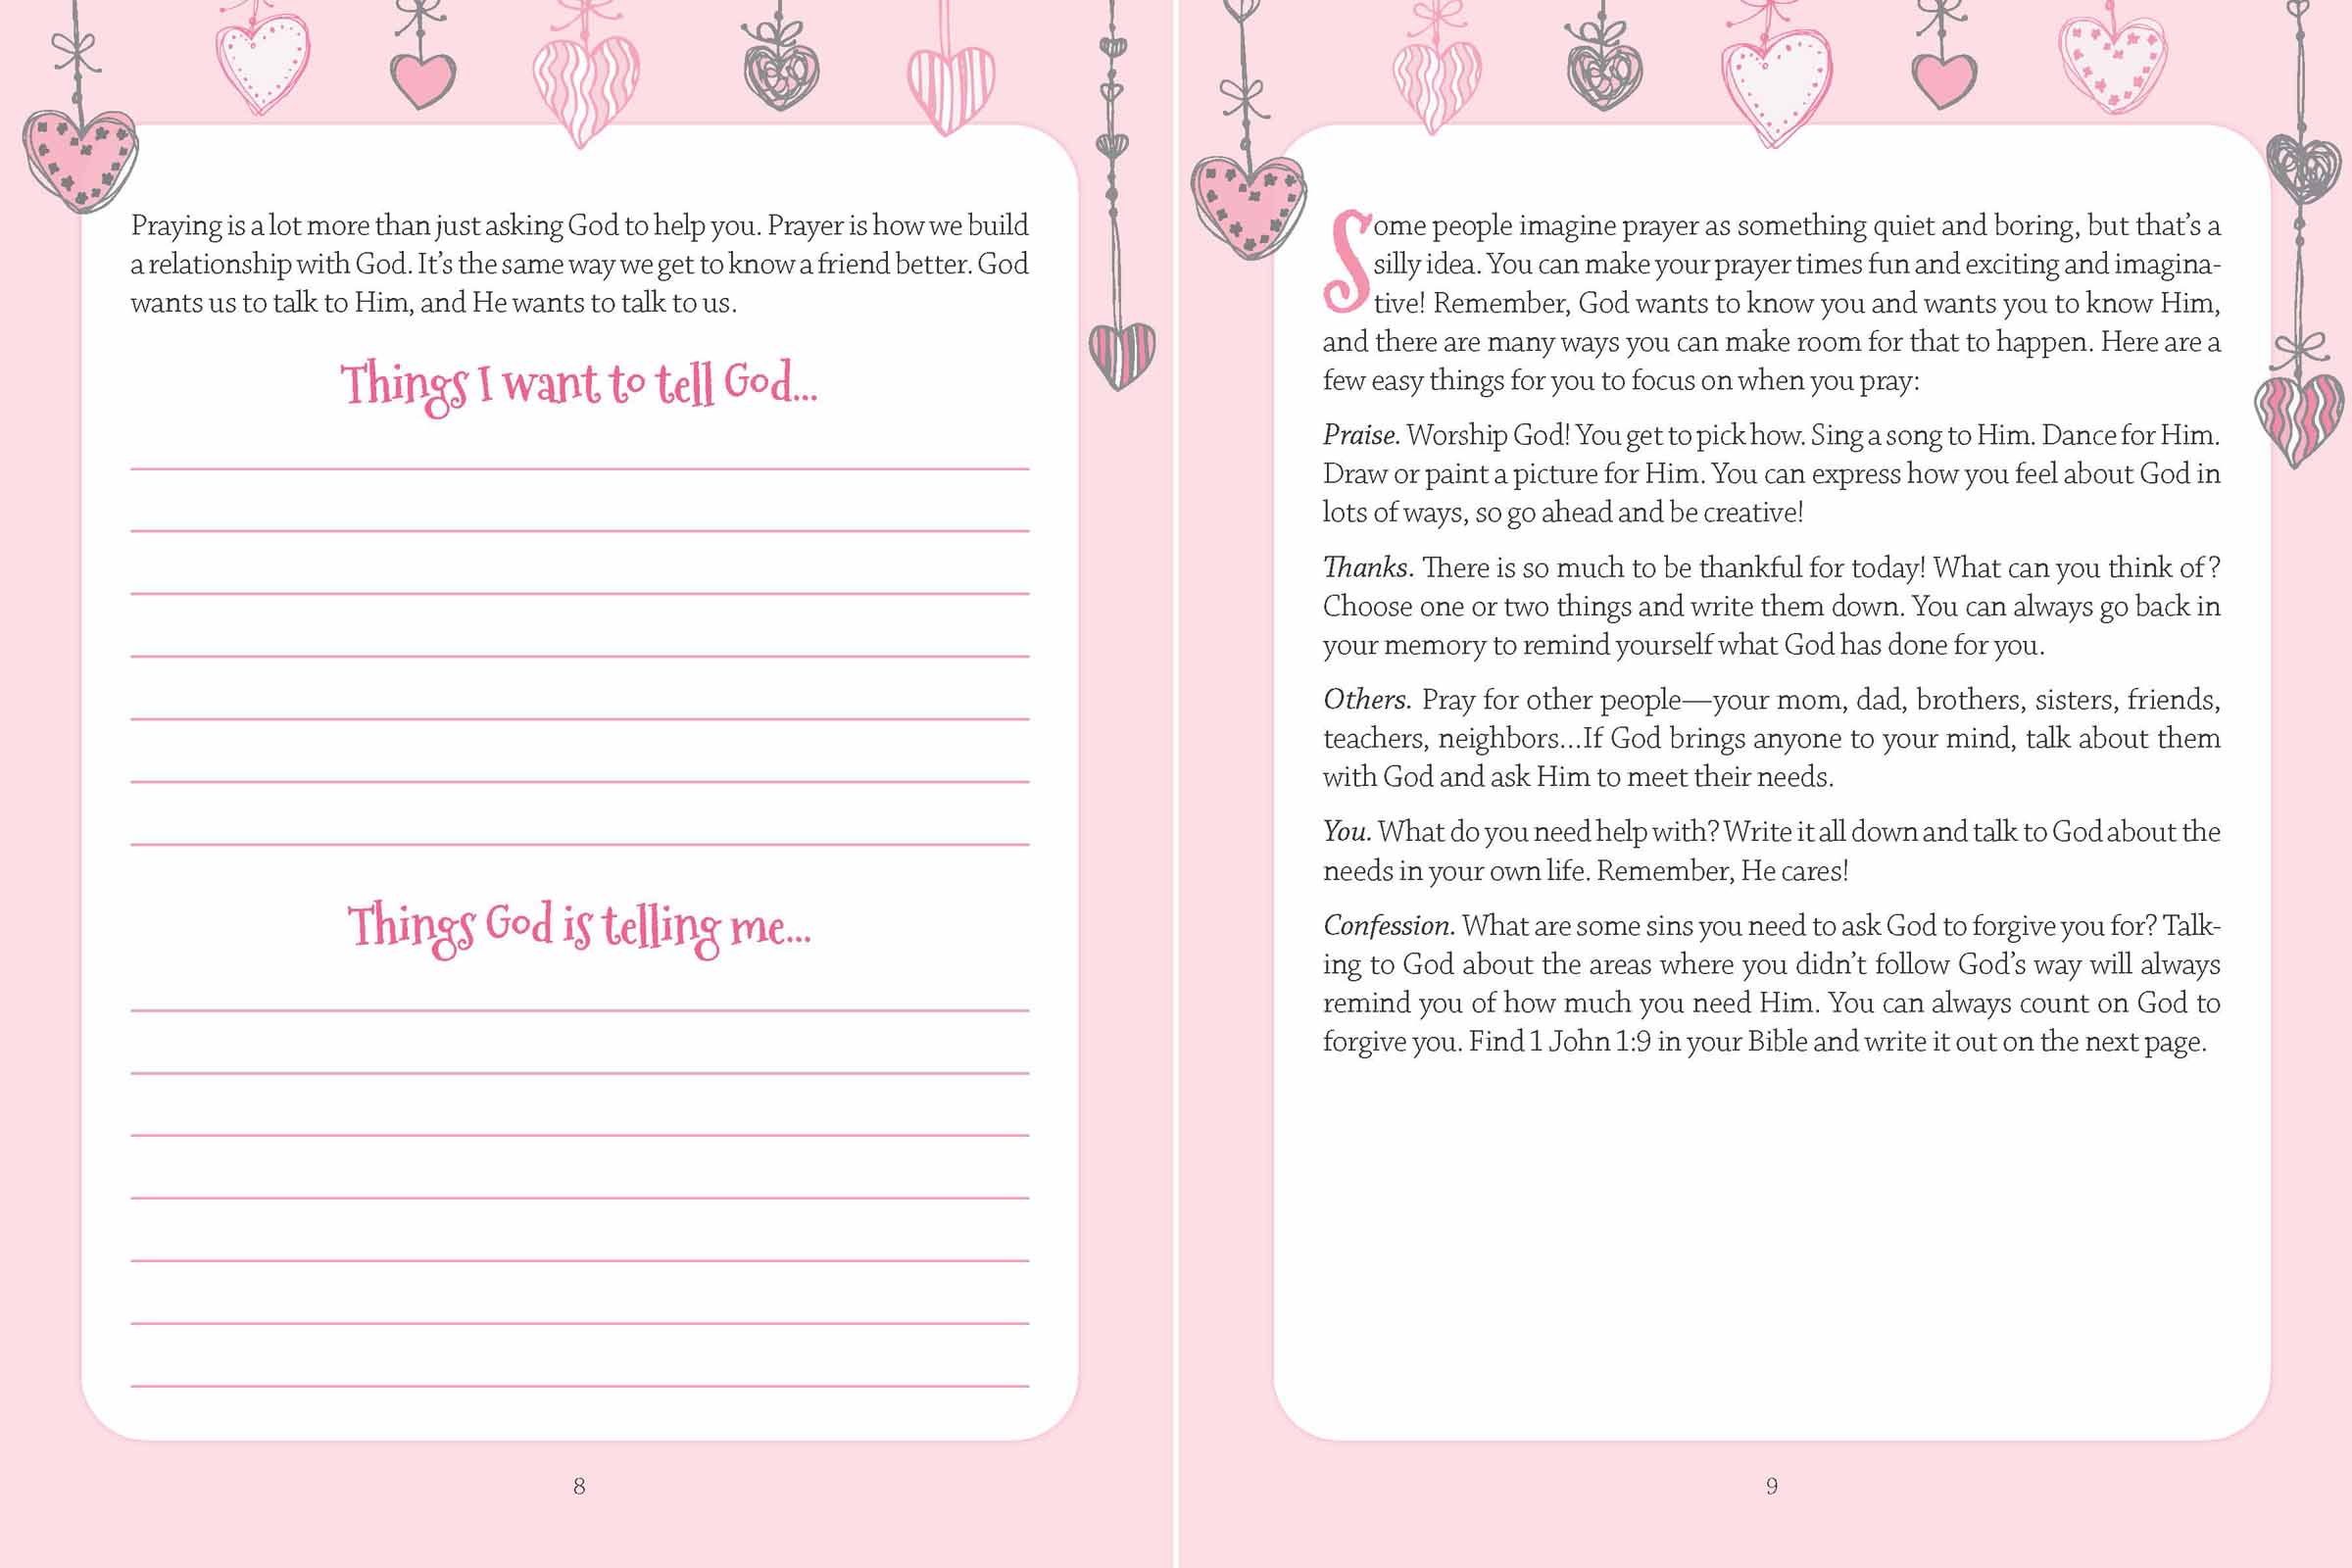 Praying is a lot more than just asking God to help you. Prayer is how we build
a relationship with God. It’s the same way we get to know a friend better. God
wants us to talk to Him, and He wants to talk to us.
Things I want to tell God...
Things God is telling me...
8
Some people imagine prayer as something quiet and boring, but that’s a
silly idea. You can make your prayer times fun and exciting and imagina-
tive! Remember, God wants to know you and wants you to know Him,
and there are many ways you can make room for that to happen. Here are a
few easy things for you to focus on when you pray:
Praise. Worship God! You get to pick how. Sing a song to Him. Dance for Him.
Draw or paint a picture for Him. You can express how you feel about God in
lots of ways, so go ahead and be creative!
Thanks. There is so much to be thankful for today! What can you think of?
Choose one or two things and write them down. You can always go back in
your memory to remind yourself what God has done for you.
Others. Pray for other people—your mom, dad, brothers, sisters, friends,
teachers, neighbors...If God brings anyone to your mind, talk about them
with God and ask Him to meet their needs.
You. What do you need help with? Write it all down and talk to God about the
needs in your own life. Remember, He cares!
Confession. What are some sins you need to ask God to forgive you for? Talk-
ing to God about the areas where you didn’t follow God’s way will always
remind you of how much you need Him. You can always count on God to
forgive you. Find 1 John 1:9 in your Bible and write it out on the next page.
9